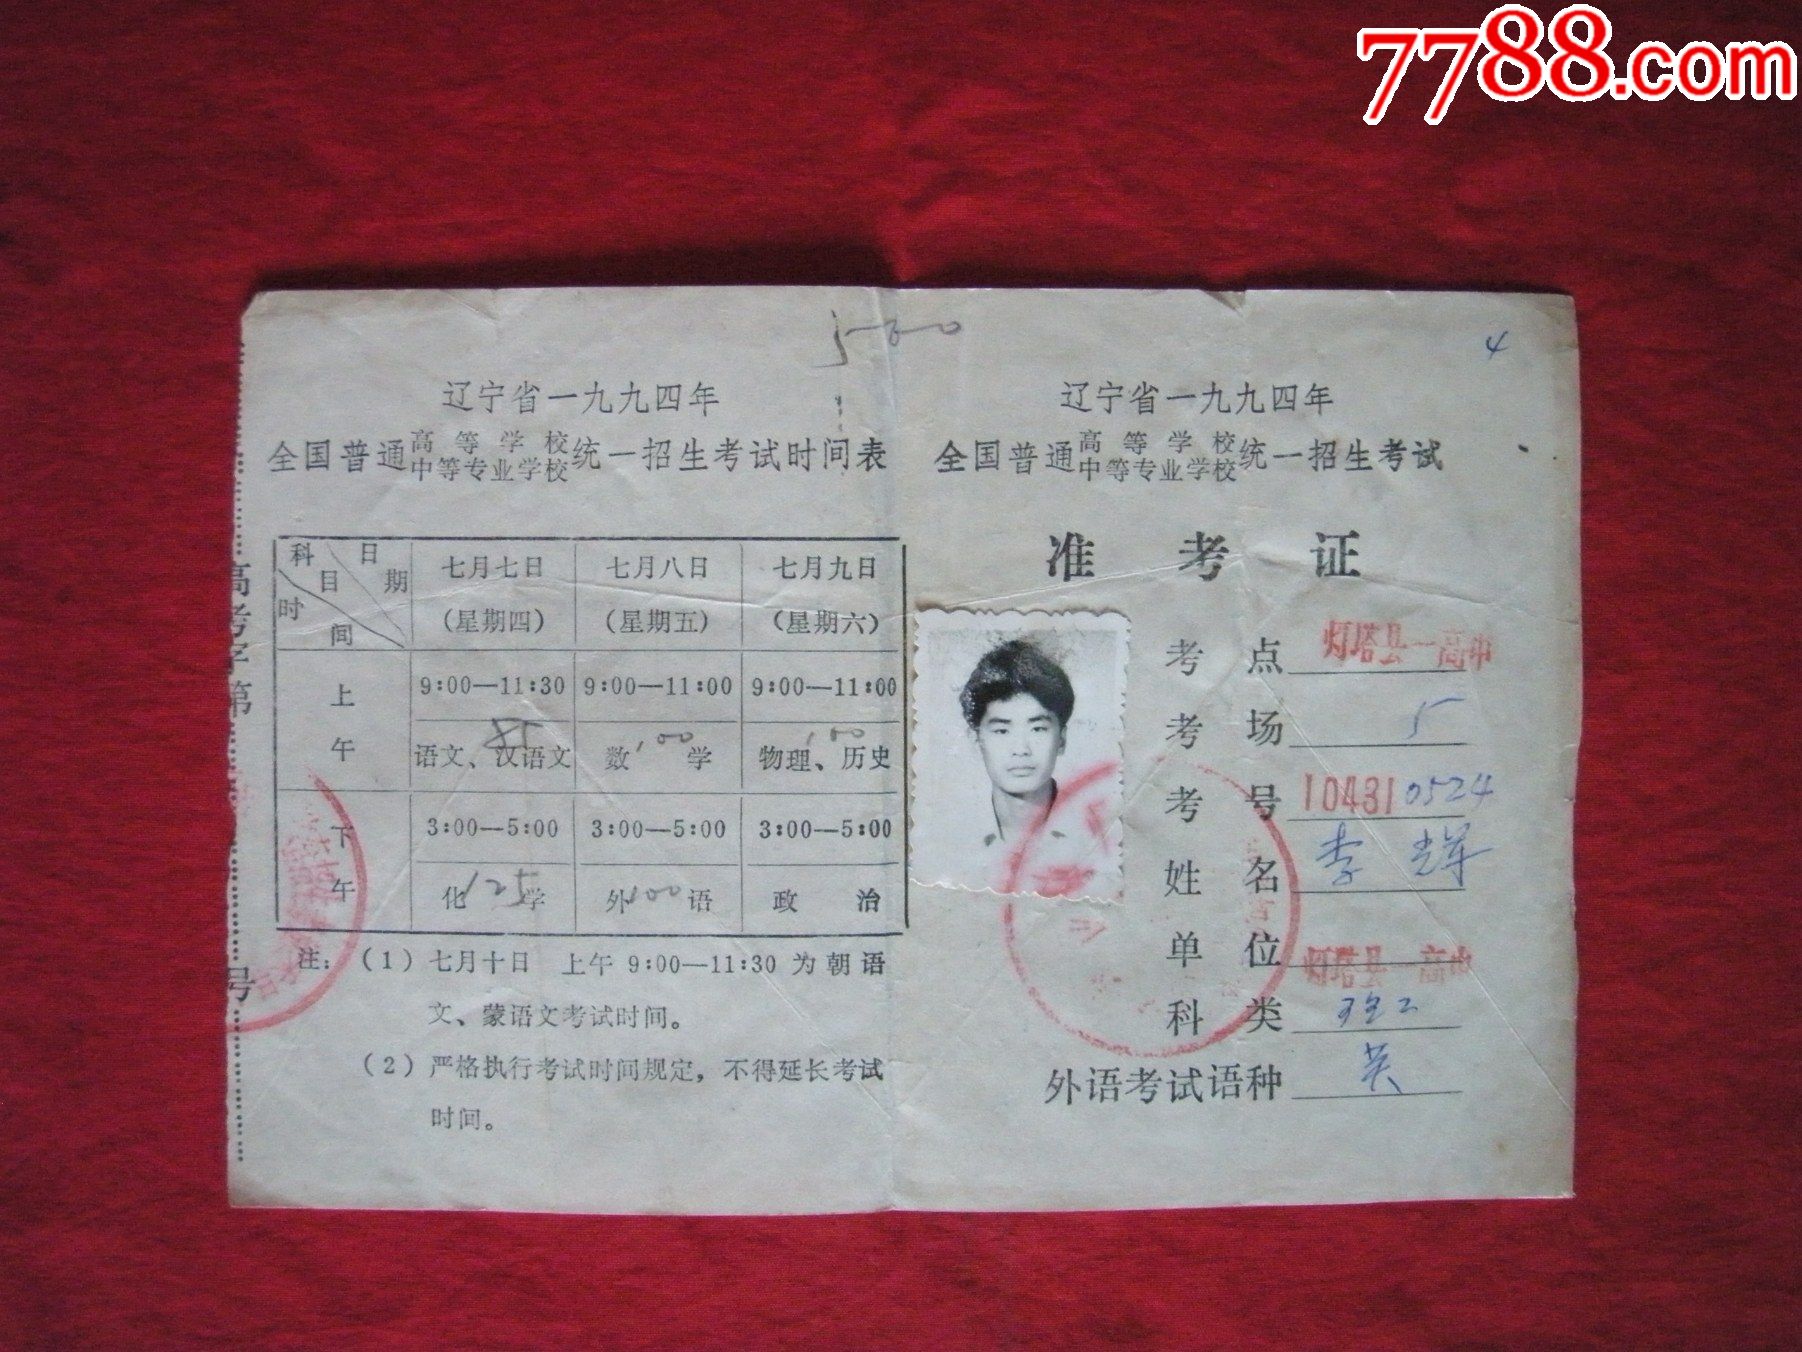 7788.com
500
4
辽宁省一九九四年
全国普通高等学校中等专业学校统一招生考试时间表
科目 日期 时间
七月七日 七月八日 七月九日
(星期四) (星期五) (星期六)
上午
9:00—11:30 9:00—11:00 9:00—11:00
85 100 100
语文、汉语文 数学 物理、历史
下午
3:00—5:00 3:00—5:00 3:00—5:00
125 100
化学 外语 政治
注:(1)七月十日 上午 9:00—11:30 为朝语
文、蒙语文考试时间。
(2)严格执行考试时间规定,不得延长考试
时间。
高考字第
号
辽宁省一九九四年
全国普通高等学校中等专业学校统一招生考试
准考证
考点 灯塔县一高中
考场 5
考号 104310524
姓名 李辉
单位 灯塔县一高中
科类 理工
外语考试语种 英